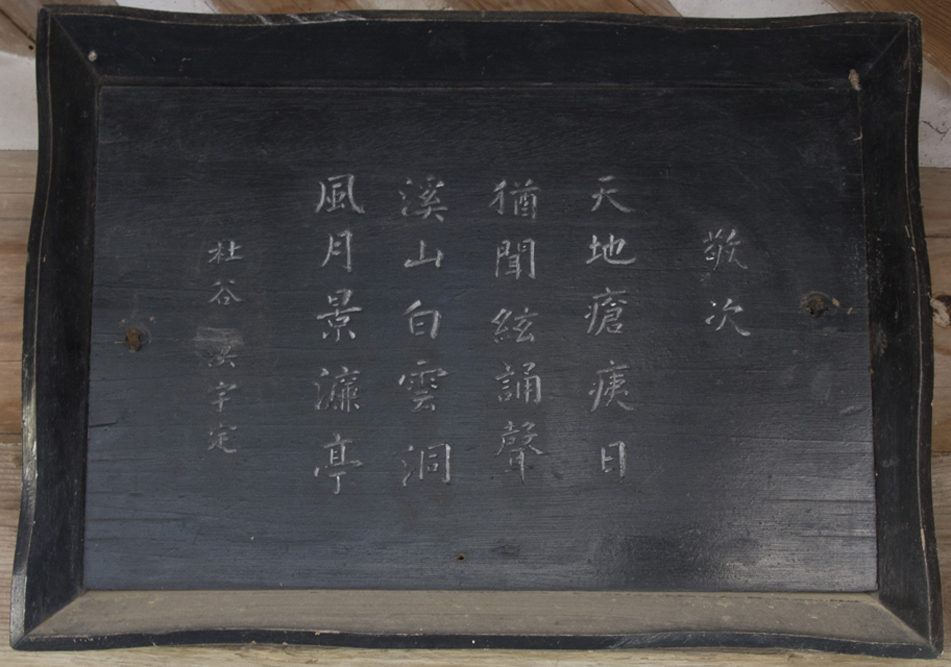 敬次
天地瘡痍日
猶聞絃誦聲
溪山白雲洞
風月景濂亭
杜谷 洪宇定